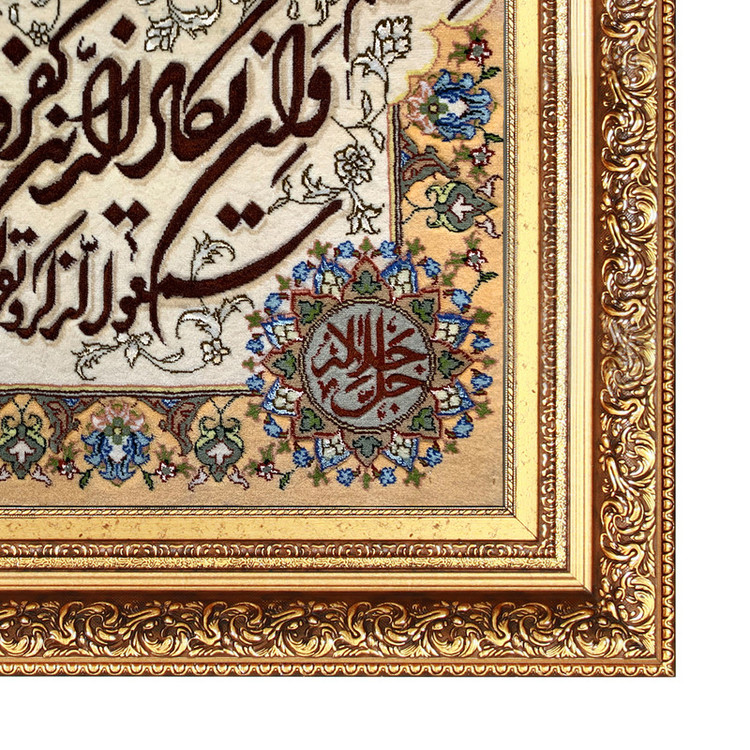 وَاِن یَکادُ الَّذینَ کَفَرو
سمعوا الذکر و یقو
جل جلاله